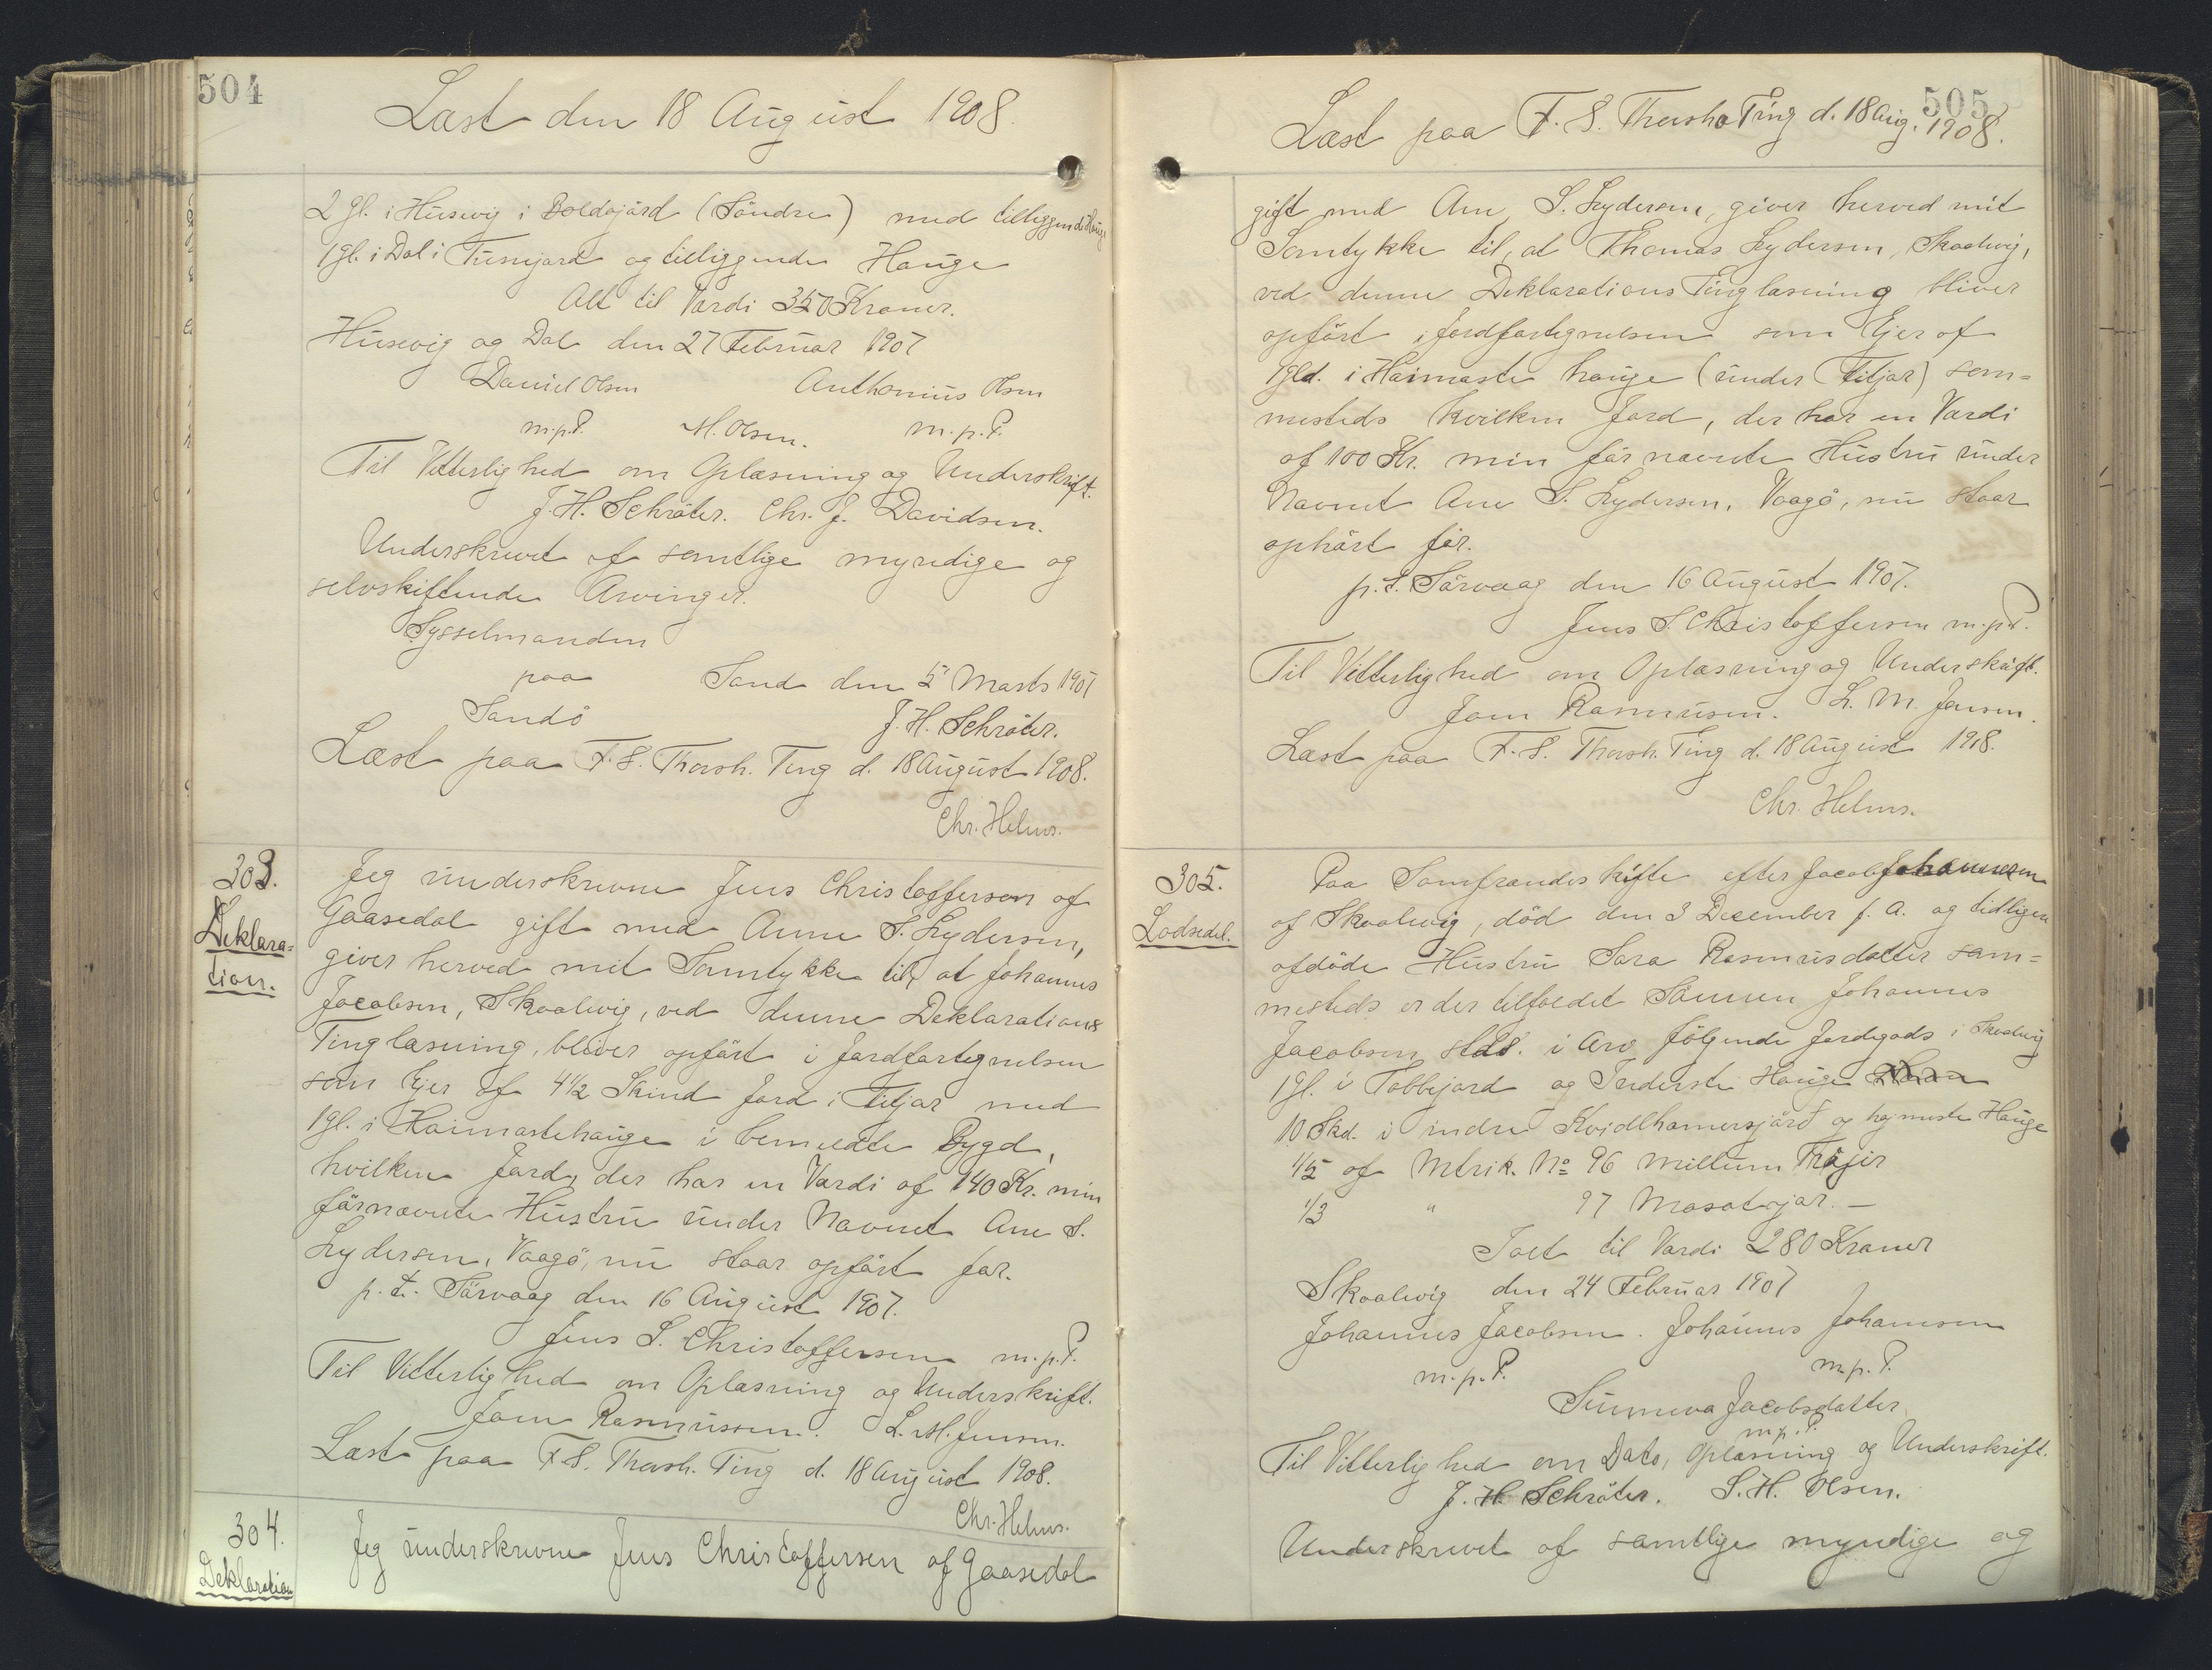 504
Læst den 18 August 1908.
2 Gl. i Husevig i Boldagjärd (Söndre) med tilliggende Hauge
1 gl. i Dal i Tunijard og tilliggende Hauge
Alt til Værdi 350 Kroner.
Husevig og Dal den 27 Februar 1907
Daniel Olsen Anthonius Olsen
m.p.P. M. Olsen. m.p.P.
Til Vitterlighed om Oplæsning og Underskrift.
J. H. Schröter. Chr. J. Davidsen.
Underskrevet af samtlige myndige og
selvskiftende Arvinger.
Sysselmanden
paa Sand den 5 Marts 1907
Sandö J. H. Schröter.
Læst paa F. S. Thorsh. Ting d. 18 August 1908.
Chr. Helms.
303.
Deklara=
tion.
Jeg underskrevne Jens Christoffersen af
Gaasedal gift med Anne S. Lydersen,
giver herved mit Samtykke til, at Johannes
Jacobsen, Skaalevig, ved denne Deklarations
Tinglæsning, bliver opført i Jordfortegnelsen
som Ejer af 4½ Skind Jord i Titjar med
1 gl. i Haimastehauge i bemeldte Bygd,
hvilken Jord, der har en Værdi af 140 Kr. min
førnævnte Hustru under Navnet Ane S.
Lydersen, Vaagö, nu staar opført for.
p. t. Sörvaag den 16 August 1907.
Jens S. Christoffersen m.p.P.
Til Vitterlighed om Oplæsning og Underskrift.
Joen Rasmussen. L. M. Jensen.
Læst paa F. S. Thorsh. Ting d. 18 August 1908.
Chr. Helms.
304.
Deklaration
Jeg underskrevne Jens Christoffersen af Gaasedal
505
Læst paa F. S. Thorshs Ting d. 18 Aug. 1908.
gift med Ane S. Lydersen, giver herved mit
Samtykke til, at Thomas Lydersen, Skaalevig,
ved denne Deklarations Tinglæsning bliver
opført i Jordfortegnelsen som Ejer af
1 gld. i Haimaste hauge (under Titjar) sam=
mesteds hvilken Jord, der har en Værdi
af 100 Kr. min førnævnte Hustru under
Navnet Ane S. Lydersen, Vaagö, nu staar
ophört för.
p. t. Sörvaag den 16 August 1907.
Jens S. Christoffersen m.p.P.
Til Vitterlighed om Oplæsning og Underskrift.
Joen Rasmussen. L. M. Jensen.
Læst paa F. S. Thorsh. Ting d. 18 August 1908.
Chr. Helms.
305.
Lodsedel.
Paa Samfrændeskifte efter Jacob Johannesen
af Skaalevig, död den 3 December f. A. og tidligere
afdöde Hustru Sara Rasmusdatter sam=
mesteds er der tilfaldet Sönnen Johannes
Jacobsen sstds. i Arv følgende Jordegods i Skaalevig
1 gl. i Tobbijard og Inderste Hauge
10 Skd. i indre Kvidlhamersjärd og hajmeste Hauge
1/5 af Mtrik. No 96 Millum Tråjir
1/3 " 97 Masatrjar. —
Ialt til Værdi 280 Kroner
Skaalevig den 24 Februar 1907
Johannes Jacobsen. Johannes Johansen
m.p.P. m.p.P.
Sunneva Jacobsdatter
m.p.P.
Til Vitterlighed om Dato, Oplæsning og Underskrift.
J. H. Schröter. S. H. Olsen.
Underskrevet af samtlige myndige og